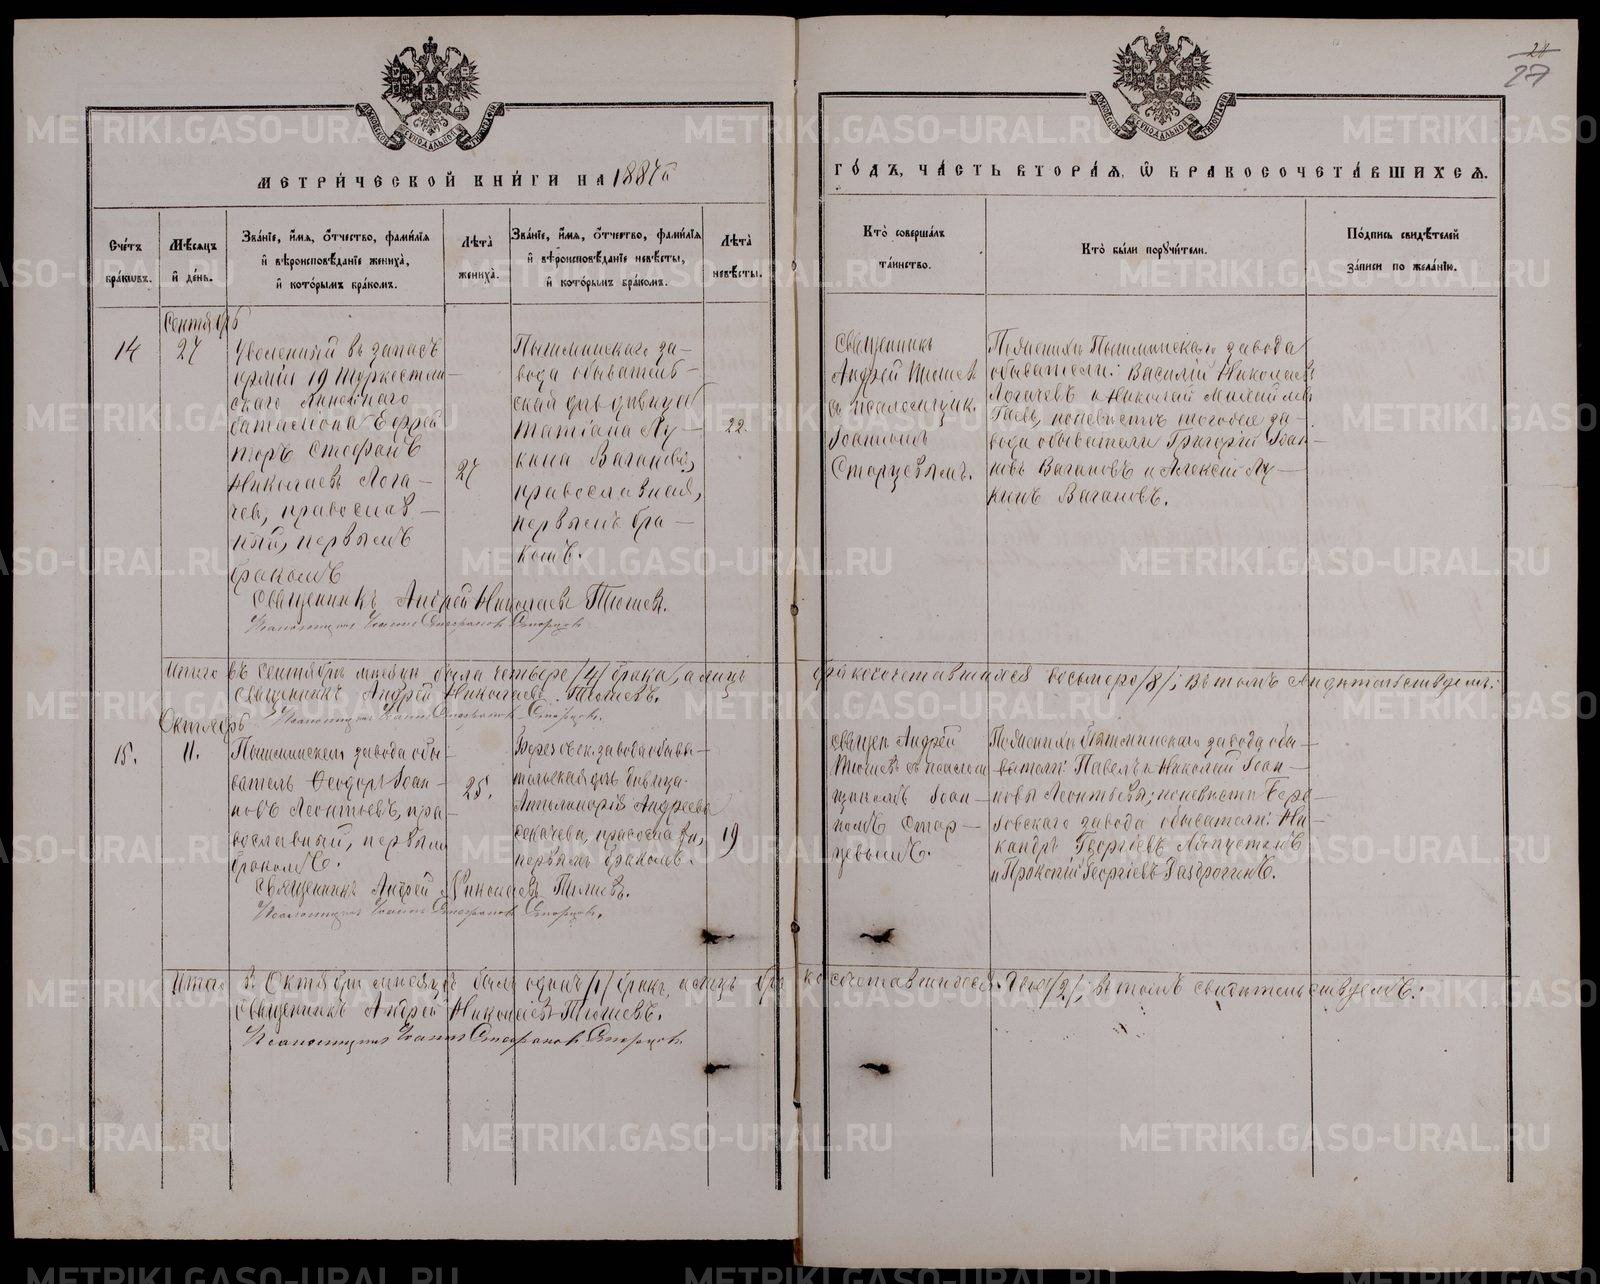 28
27
МЕТРИЧЕСКОЙ КНИГИ НА 1887й
ГОДЪ, ЧАСТЬ ВТОРАЯ, Ѿ БРАКОСОЧЕТАВШИХСЯ.
Счетъ браковъ.
Мѣсяцъ и день.
Званіе, имя, отчество, фамилія и вѣроисповѣданіе жениха, и которымъ бракомъ.
Лѣта жениха.
Званіе, имя, отчество, фамилія и вѣроисповѣданіе невѣсты, и которымъ бракомъ.
Лѣта невѣсты.
Кто совершалъ таинство.
Кто были поручители.
Подпись свидѣтелей записи по желанію.
Сентябрь
14
27
Уволенный въ запасъ
арміи 19 Туркестан-
скаго Линейнаго
баталіона Ефрей
торъ Стефанъ
Николаевъ Лога-
чев, православ-
ный, первымъ
бракомъ
27
Пышминскаго за-
вода обыватель-
ская дочь девица
Татіана Лу-
кина Ваганова,
православная,
первымъ бра-
комъ.
22.
Священникъ
Андрей Тюшев
съ псаломщик.
Іоанномъ
Старцевымъ.
По женихѣ Пышминскаго завода
обыватели: Василій Николаевъ
Логачевъ и Николай Михайлов
по невѣстѣ тогоже за-
вода обыватели Григорій Іоан-
новъ Вагановъ и Алексій Лу-
кинъ Вагановъ.
Священникъ Андрей Николаевъ Тюшев.
Псаломщикъ Іоаннъ Стефановъ Старцовъ
Итого въ Сентябрѣ месяцѣ было четыре /4/ брака, а лицъ бракосочетавшихся восьмеро /8/; въ томъ свидѣтельствуемъ:
Священникъ Андрей Николаевъ Тюшевъ.
Псаломщикъ Іоаннъ Стефановъ Старцовъ.
Октябрь
15.
11.
Пышминскаго завода обы-
ватель Ѳеодоръ Іоан-
новъ Леонтьевъ, пра-
вославный, первымъ
бракомъ.
25.
Березовск. завода обыва-
тельская дочь дѣвица
Андреева
православн,
первымъ бракомъ.
19
Священ. Андрей
Тюшевъ съ псалом
щикомъ Іоан-
номъ Стар-
цевымъ.
По женихѣ Пышминскаго завода обы-
ватели: Павелъ и Николай Іоан-
новы Леонтьевы; по невѣстѣ Бере-
зовскаго завода обыватели: Ни-
кандръ Георгіевъ
и Прокопій Георгіевъ
Священникъ Андрей Николаевъ Тюшевъ.
Псаломщикъ Іоаннъ Стефановъ Старцовъ.
Итого въ Октябрѣ месяцѣ былъ одинъ /1/ бракъ, а лицъ бракосочетавшихся двое /2/; въ томъ свидѣтельствуемъ:
Священникъ Андрей Николаевъ Тюшевъ.
Псаломщикъ Іоаннъ Стефановъ Старцовъ.
METRIKI.GASO-URAL.RU